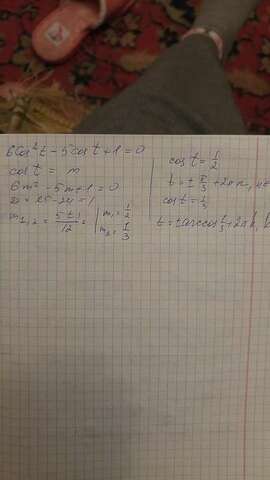 6cos²t - 5cost + 1 = 0
cost = m
6m² - 5m + 1 = 0
D = 25 - 24 = 1
m₁,₂ = (5 ± 1)/12 = | m₁ = 1/2
m₂ = 1/3
cost = 1/2
t = ± π/3 + 2πn, n∈
cost = 1/3
t = ± arccos 1/3 + 2πk, k